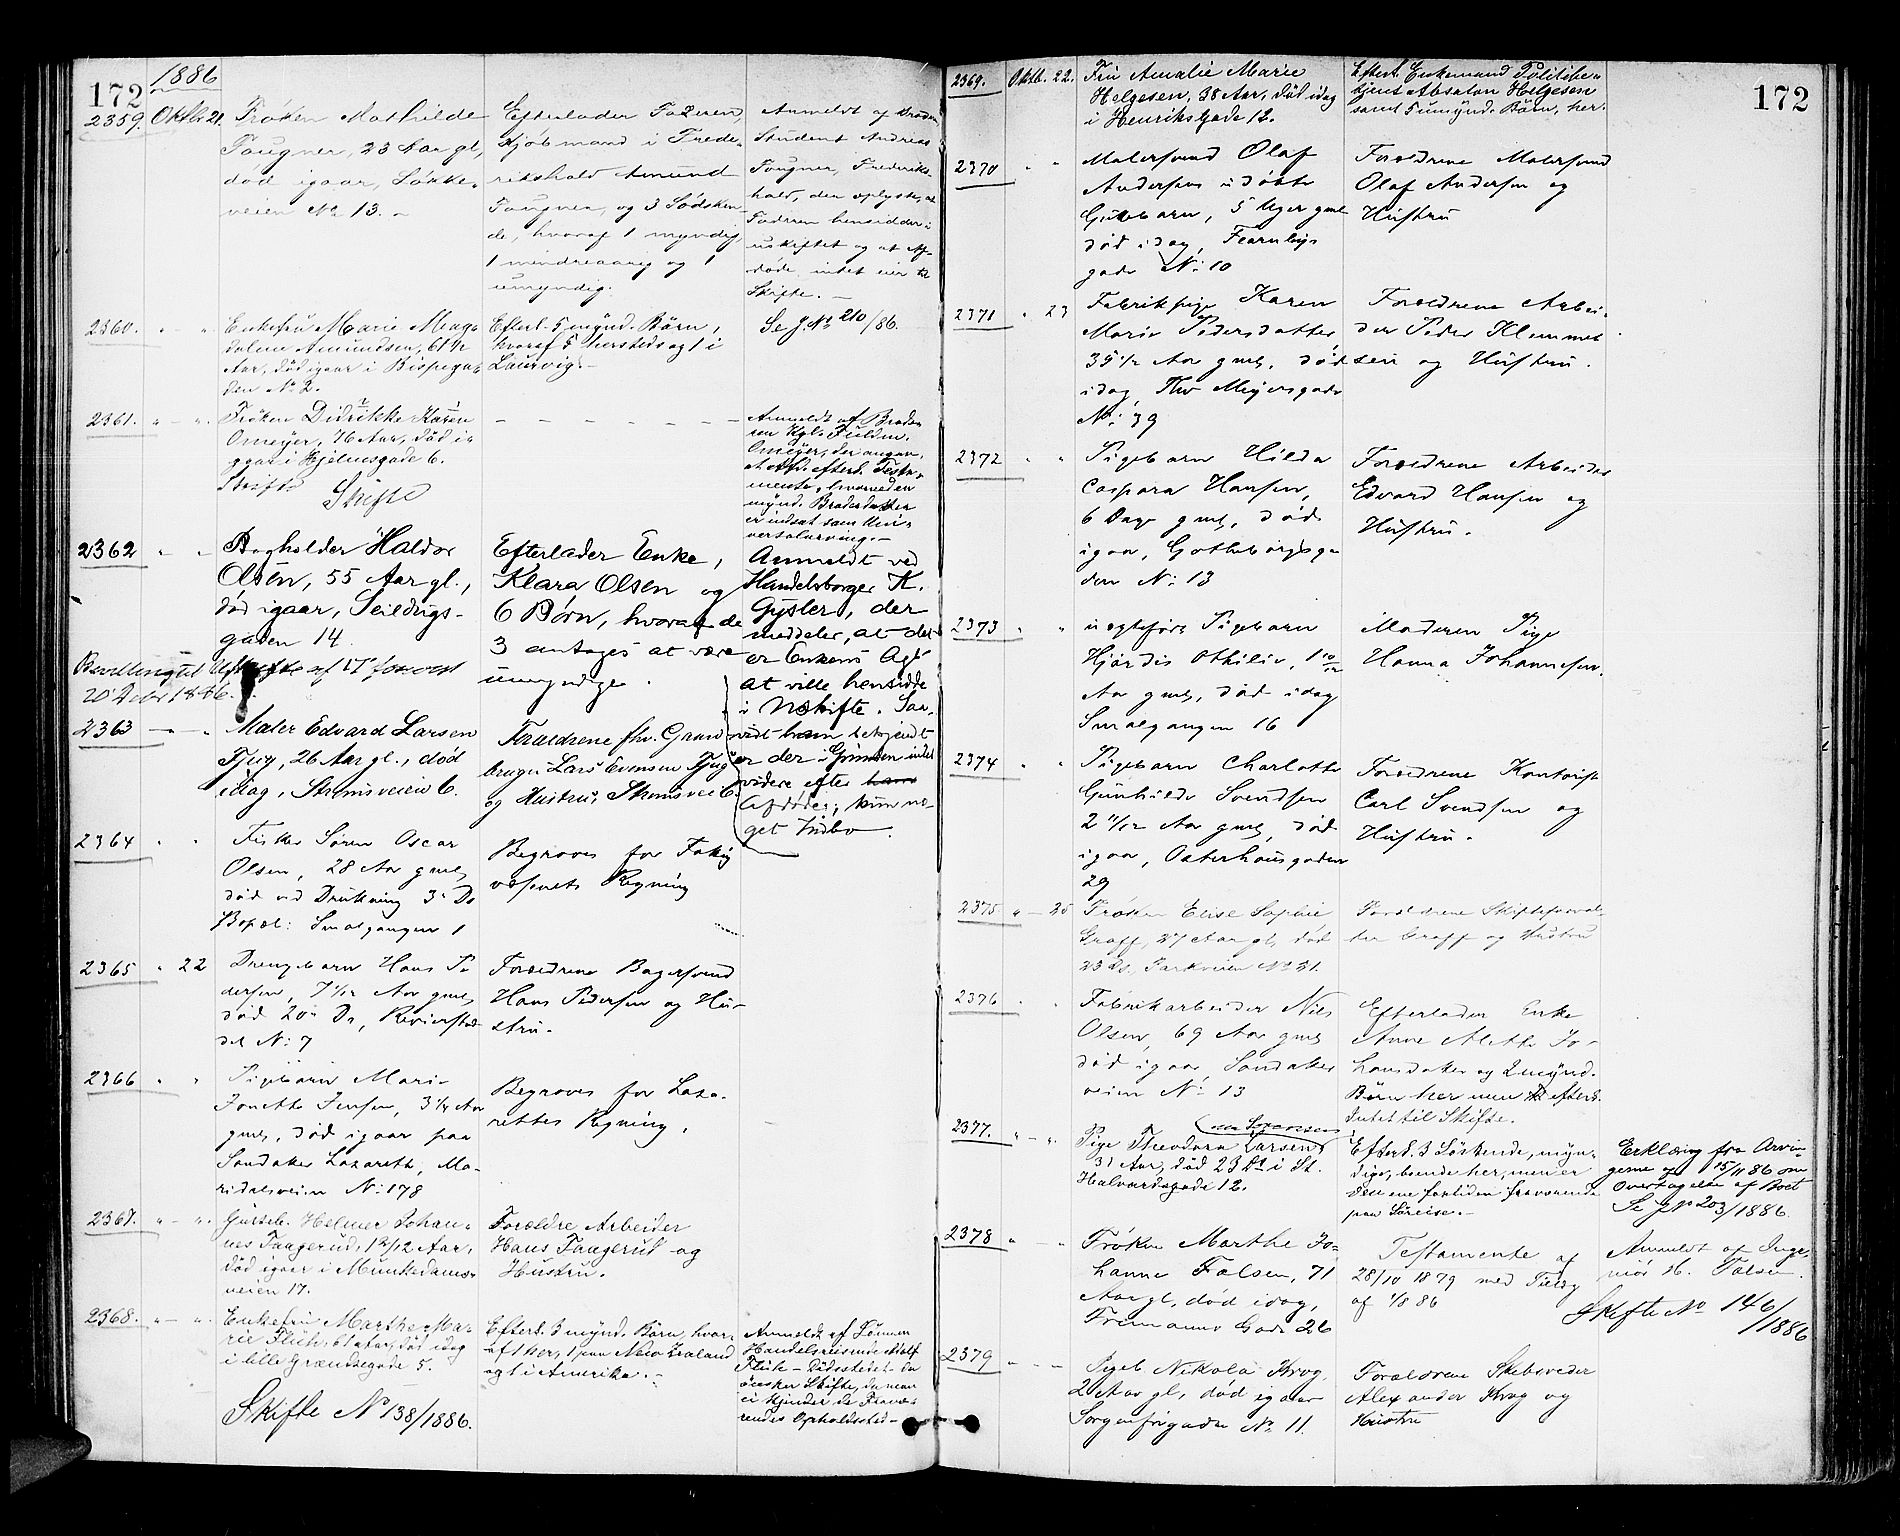 172
1886
2359. Oktb. 21. Frøken Mathilde
Fougner, 23 Aar gl,
død igaar, Løkke-
veien No 13. -
Efterlader Faderen,
Kjøbmand i Frede-
rikshald Amund
Fougner, og 3 Sødsken-
de, hvoraf 1 myndig,
1 mindreaarig og 1
umyndig.
Anmeldt af Broder
Student Andreas
Fougner, Frederiks-
hald, der oplyste, at
Faderen hensidder i
uskiftet og at Af-
døde intet eier til
Skifte. -
2360. " " Enkefru Marie Mag-
dalene Amundsen, 61 1/2
Aar, død igaar i Bispega-
den No 2.
Efterl. 5 mynd. Børn,
hvoraf 5 herstedsog 1 i
Laurvig. -
Se J. No 210/86.
2361. " " Frøken Didrikke Karine
Omejer, 76 Aar, død i-
gaar i Hjelmsgade 6.
Skifte
Skifte
- - - - - - -
Anmeldt af Brode-
ren Kgl. Fuldm.
Omejer, der angav,
at Afd. efterl. Testa-
mente, hvorved en
mynd. Broderdatter
er indsat som Uni-
versalarving. -
2362 " " Bogholder Haldor
Olsen, 55 Aar gl.,
død igaar, Seildugs-
gaden 14.
Efterlader Enke,
Klara Olsen og
6 Børn, hvoraf de
3 antages at være
umyndige.
Anmeldt ved
Handelsborger K.
Gysler, der
meddeler, at det
er Enkens Agt
at ville hensidde
i Uskifte. Saa-
vidt ham bekjendt
er der i Grunden intet
videre efter hans
Afdøde; kun no-
get Indbo.
Bevilling til Uskifte af forevist
20 Debr 1886.
2363 - " Maler Edvard Larsen
Fjug, 26 Aar gl., død
idag, Strømsveien 6.
Forældrene fhv. Gaard-
bruger Lars Evensen Fjug
og Hustru, Strømsvei 6.
2364 " " Fisker Søren Oscar
Olsen, 28 Aar gml,
død ved Drukning 3' Ds
Bopæl: Smalgangen 1
Begraves for Fattig
væsenets Regning
2365 " 22 Drengebarn Hans Pe
dersen, 7 1/12 Aar gml,
død 20' Ds, Revierstræ-
det No 7
Forældrene Bagersvend
Hans Pedersen og Hu-
stru.
2366 " " Pigebarn Marie
Jonette Jensen, 3 1/4 Aar
gml, død igaar paa
Sandaker Lazareth, Ma-
ridalsveien No 178
Begraves for Laza-
rettes Regning.
2367. " - ". Gutteb. Helmer Johan-
nes Faagerud, 1 2/12 Aar,
død igaar i Munkedams-
veien 17.
Forældre Arbeider
Hans Faagerud og
Hustru.
2368. " - ". Enkefru Marthe Ma-
rie Flüh, 61 Aar, død idag
i lille Grændsegade 5.
Skifte No 138/1886.
Efterl. 3 mynd. Børn, hvor-
af 1 her, 1 paa New Zealand
og 1 i Amerika. -
Anmeldt af Sønnen
Handelsreisende Adolf
Flüh - Dødsstedet - der
ønsker Skifte, da man
ei kjender de Fravæ-
rendes Opholdssted -
172
2369. Oktb. 22. Fru Amalie Marie
Helgesen, 38 Aar, død idag
i Henriksgade 12.
Efterl. Enkemand Politibe-
tjent Absalon Helgesen
samt 5 umynd. Børn, her.
2370 " " Malersvend Olaf
Andersens udøbte
Guttebarn, 5 Uger gml
død idag, Fearnleys
gade No 10
Forældrene Malersvend
Olaf Andersen og
Hustru
2371 " 23 Fabrikpige Karen
Marie Pedersdatter
35 1/2 Aar gml, død
idag, Thv Meyersgade
No 39
Forældrene Arbei-
der Peder Klemmet
sen og Hustru.
2372 " " Pigebarn Hilda
Caspara Hansen,
6 Dage gml, død
igaar, Gotheborgsga
den No 13
Forældrene Arbeider
Edvard Hansen og
Hustru.
2373 " " uægteført Pigebarn
Hjørdis Othilie, 1 10/12
Aar gml, død idag
Smalgangen 16
Moderen Pige
Hanna Johannesen.
2374 " " Pigebarn Charlotte
Gunhilde Svendsen
2 11/12 Aar gml, død
igaar, Osterhausgaden
29
Forældrene Kontorist
Carl Svendsen og
Hustru.
2375 " - 25 Frøken Elise Sophie
Graff, 27 Aar gl, død
23 Ds, Parkveien No 31.
Forældrene Skifteforval-
ter Graff og Hustru
2376 " " Fabrikarbeider Nils
Olsen, 69 Aar gml
død igaar, Sandaker
veien No 13
Efterlader Enke
Anne Alette Jo-
hansdatter og 2 mynd.
Børn her men efterl.
Intet til Skifte.
2377. " - ". Pige Theodora Larsen
31 Aar, død 23 Ds i St.
Halvardsgade 12.
Efterl. 3 Søskende, myn-
dige, boende her, men er
den ene fortiden fraværende
paa Søreise. -
Erklæring fra Arvin-
gerne af 15/11 86 om
Overtagelse af Boet
Se J No 203/1886.
2378 " - - Frøken Marthe Jo-
hanne Falsen, 71
Aar gl, død idag,
Fremanns Gade 26
Testamente af
28/10 1879 med Tillæg
af 1/8 86
Anmeldt af Inge-
niør H. Falsen.
Skifte No 146/1886
2379 " - - Pigeb. Nikola Krog,
2 Aar gl, død igaar
Sorgenfrigaden No 11.
Forældrene Skibsreder
Alexander Krog og
Hustru